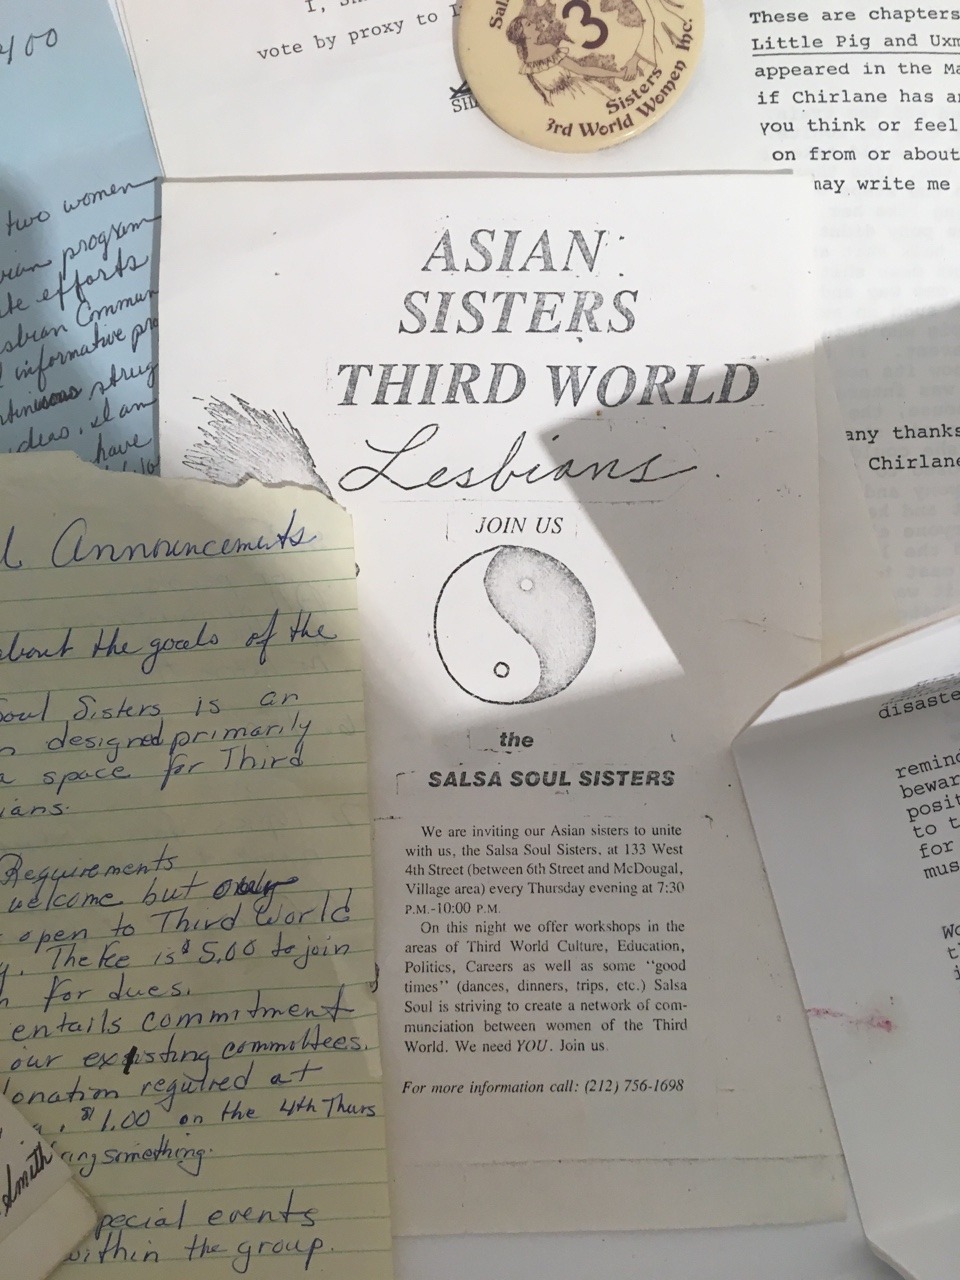 400
I,
vote by proxy to
3
Sisters
3rd World Women Inc.
These are chapters
Little Pig and
appeared in the
if Chirlane has
you think or feel
on from or about
may write me
two women
program
efforts
informative
have
ASIAN
SISTERS
THIRD WORLD
Lesbians
JOIN US
the
SALSA SOUL SISTERS
We are inviting our Asian sisters to unite
with us, the Salsa Soul Sisters, at 133 West
4th Street (between 6th Street and McDougal,
Village area) every Thursday evening at 7:30
P.M.-10:00 P.M.
On this night we offer workshops in the
areas of Third World Culture, Education,
Politics, Careers as well as some "good
times" (dances, dinners, trips, etc.) Salsa
Soul is striving to create a network of com-
munciation between women of the Third
World. We need YOU. Join us.
For more information call: (212) 756-1698
any thanks
Chirlane
Announcements
about the goals of the
Soul Sisters is an
designed primarily
a space for Third
Requirements
welcome but only
open to Third World
The fee is $5.00 to join
for dues.
entails commitment
our existing committees.
required at
$1.00 on the 4th Thurs
something.
events
within the group.
Smith
to
for